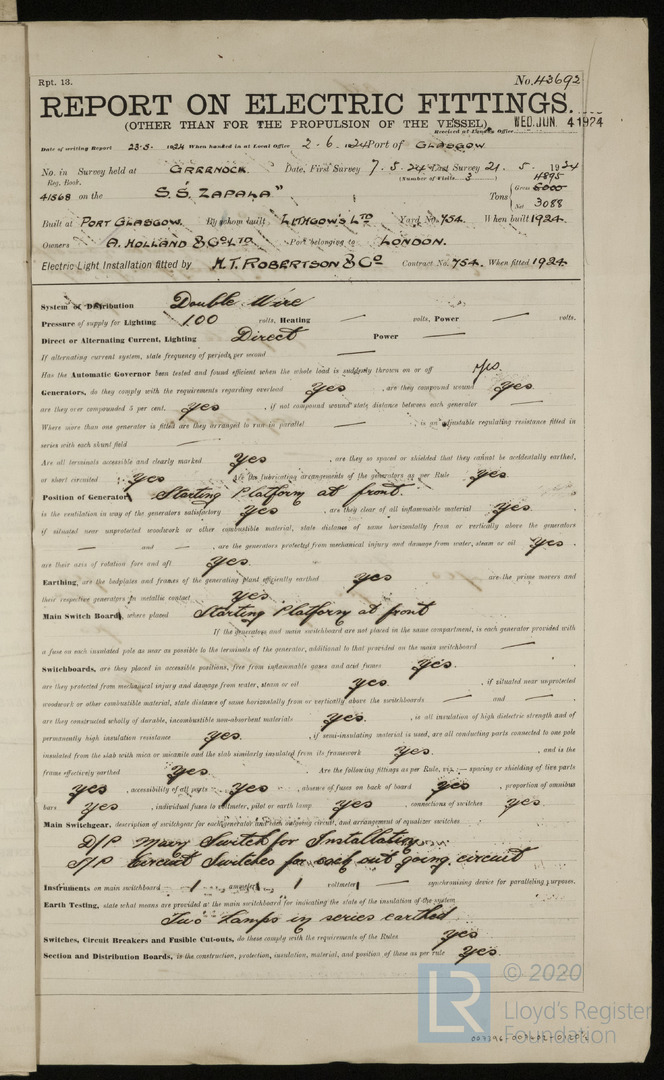 Rpt. 13. No. 43692
REPORT ON ELECTRIC FITTINGS.
(OTHER THAN FOR THE PROPULSION OF THE VESSEL)
Received at London Office WED. JUN. 4 1924
Date of writing Report 23-5- 1924 When handed in at Local Office 2-6-1924 Port of GLASGOW
No. in Survey held at GREENOCK Date, First Survey 7.5.24 Last Survey 21. 5. 1924
Reg. Book. (Number of Visits 3)
41568 on the S.S. ZAPALA" Tons { Gross 5000 4895
Net 3088
Built at PORT GLASGOW By whom built LITHGOWS LTD Yard No. 754. When built 1924.
Owners A. HOLLAND & CO LTD Port belonging to LONDON.
Electric Light Installation fitted by H.T. ROBERTSON & Co Contract No. 754. When fitted 1924.
System of Distribution Double Wire
Pressure of supply for Lighting 100 volts, Heating — volts, Power — volts.
Direct or Alternating Current, Lighting Direct Power —
If alternating current system, state frequency of periods per second —
Has the Automatic Governor been tested and found efficient when the whole load is suddenly thrown on or off yes.
Generators, do they comply with the requirements regarding overload yes, are they compound wound yes.
are they over compounded 5 per cent. yes, if not compound wound state distance between each generator —
Where more than one generator is fitted are they arranged to run in parallel —, is an adjustable regulating resistance fitted in
series with each shunt field —
Are all terminals accessible and clearly marked yes, are they so spaced or shielded that they cannot be accidentally earthed,
or short circuited yes Are the lubricating arrangements of the generators as per Rule yes.
Position of Generators Starting Platform at front.
is the ventilation in way of the generators satisfactory yes, are they clear of all inflammable material yes.
if situated near unprotected woodwork or other combustible material, state distance of same horizontally from or vertically above the generators
— and —, are the generators protected from mechanical injury and damage from water, steam or oil yes.
are their axes of rotation fore and aft yes.
Earthing, are the bedplates and frames of the generating plant efficiently earthed yes are the prime movers and
their respective generators in metallic contact yes
Main Switch Boards, where placed Starting Platform at front
If the generators and main switchboard are not placed in the same compartment, is each generator provided with
a fuse on each insulated pole as near as possible to the terminals of the generator, additional to that provided on the main switchboard —
Switchboards, are they placed in accessible positions, free from inflammable gases and acid fumes yes.
are they protected from mechanical injury and damage from water, steam or oil yes., if situated near unprotected
woodwork or other combustible material, state distance of same horizontally from or vertically above the switchboards — and —
are they constructed wholly of durable, incombustible non-absorbent materials yes., is all insulation of high dielectric strength and of
permanently high insulation resistance yes., if semi-insulating material is used, are all conducting parts connected to one pole
insulated from the slab with mica or micanite and the slab similarly insulated from its framework yes., and is the
frame effectively earthed yes. Are the following fittings as per Rule, viz.:— spacing or shielding of live parts
yes, accessibility of all parts yes, absence of fuses on back of board yes, proportion of omnibus
bars yes, individual fuses to voltmeter, pilot or earth lamp yes, connections of switches yes.
Main Switchgear, description of switchgear for each generator and each outgoing circuit, and arrangement of equalizer switches
D/P Main Switch for Installation
S/P Circuit Switches for each out going circuit
Instruments on main switchboard 1 ammeters 1 voltmeters — synchronising device for paralleling purposes.
Earth Testing, state what means are provided at the main switchboard for indicating the state of the insulation of the system
Two Lamps in series earthed
Switches, Circuit Breakers and Fusible Cut-outs, do these comply with the requirements of the Rules yes
Section and Distribution Boards, is the construction, protection, insulation, material, and position of these as per rule yes.
LR © 2020
Lloyd's Register
Foundation